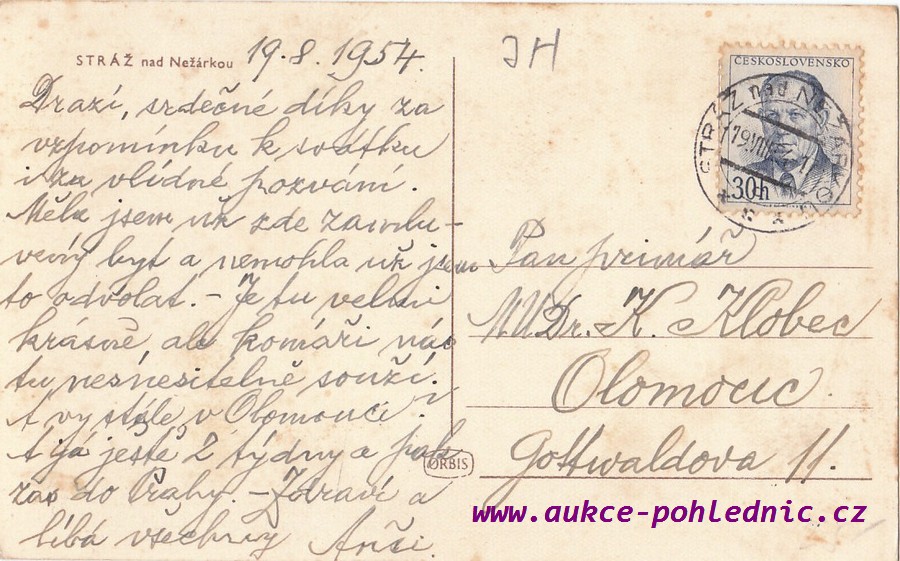 STRÁŽ nad Nežárkou 19.8.1954.
JH
Drazí, srdečné díky za
vzpomínku k svátku
i za vlídné pozvání.
Měla jsem už zde zamlu-
vený byt a nemohla už jsem
to odvolat. - Je tu velmi
krásně ale komáři nás
tu nesnesitelně souží.
vy stále v Olomouci?
já ještě 2 týdny a pak
zas do Prahy. - Zdraví a
líbá všechny
ORBIS
ČESKOSLOVENSKO
30h
STRÁŽ nad NEŽÁRKOU
Pan primář
MUDr. K. Klobec
Olomouc
Gottwaldova 11.
www.aukce-pohlednic.cz